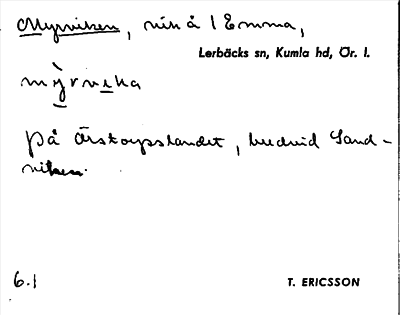 Myrviken, vik å l Emma,
Lerbäcks sn, Kumla hd, Ör. l.
mỳrvika
på Årstorpslandet, bredvid Sand-
viken.
6.1
T. ERICSSON